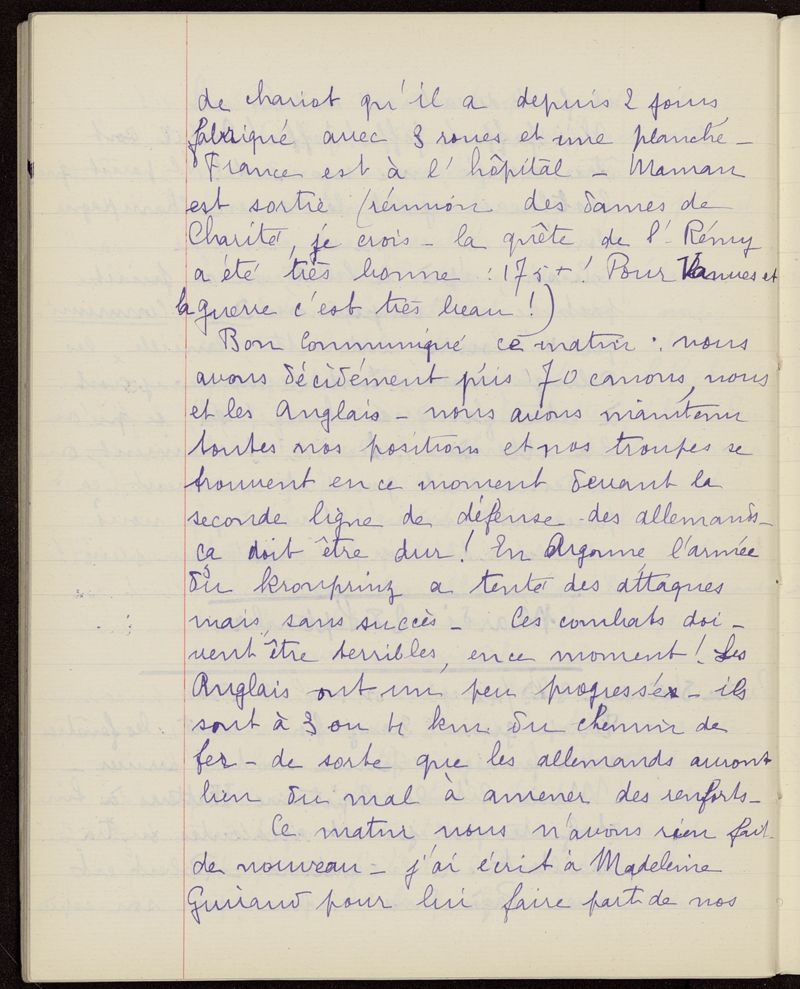 de chariot qu'il a depuis 2 jours
fabriqué avec 3 roues et une planche -
France est à l'hôpital - Maman
est sortie (réunion des dames de
Charité, je crois - la quête de l' Rémy
a été très bonne : 175 + ! Pour Vannes et
la guerre c'est très beau !)
Bon Communiqué ce matin : nous
avons décidément pris 70 canons, nous
et les Anglais - nous avons maintenu
toutes nos positions et nos troupes se
trouvent en ce moment devant la
seconde ligne de défense des allemands -
ça doit être dur ! En Argonne l'armée
du kronprinz a tenté des attaques
mais sans succès - Ces combats doi-
vent être terribles, en ce moment ! Les
Anglais ont un peu progressé - ils
sont à 3 ou 4 km du chemin de
fer - de sorte que les allemands auront
bien du mal à amener des renforts -
Ce matin nous n'avons rien fait
de nouveau - j'ai écrit à Madeleine
pour lui faire part de nos